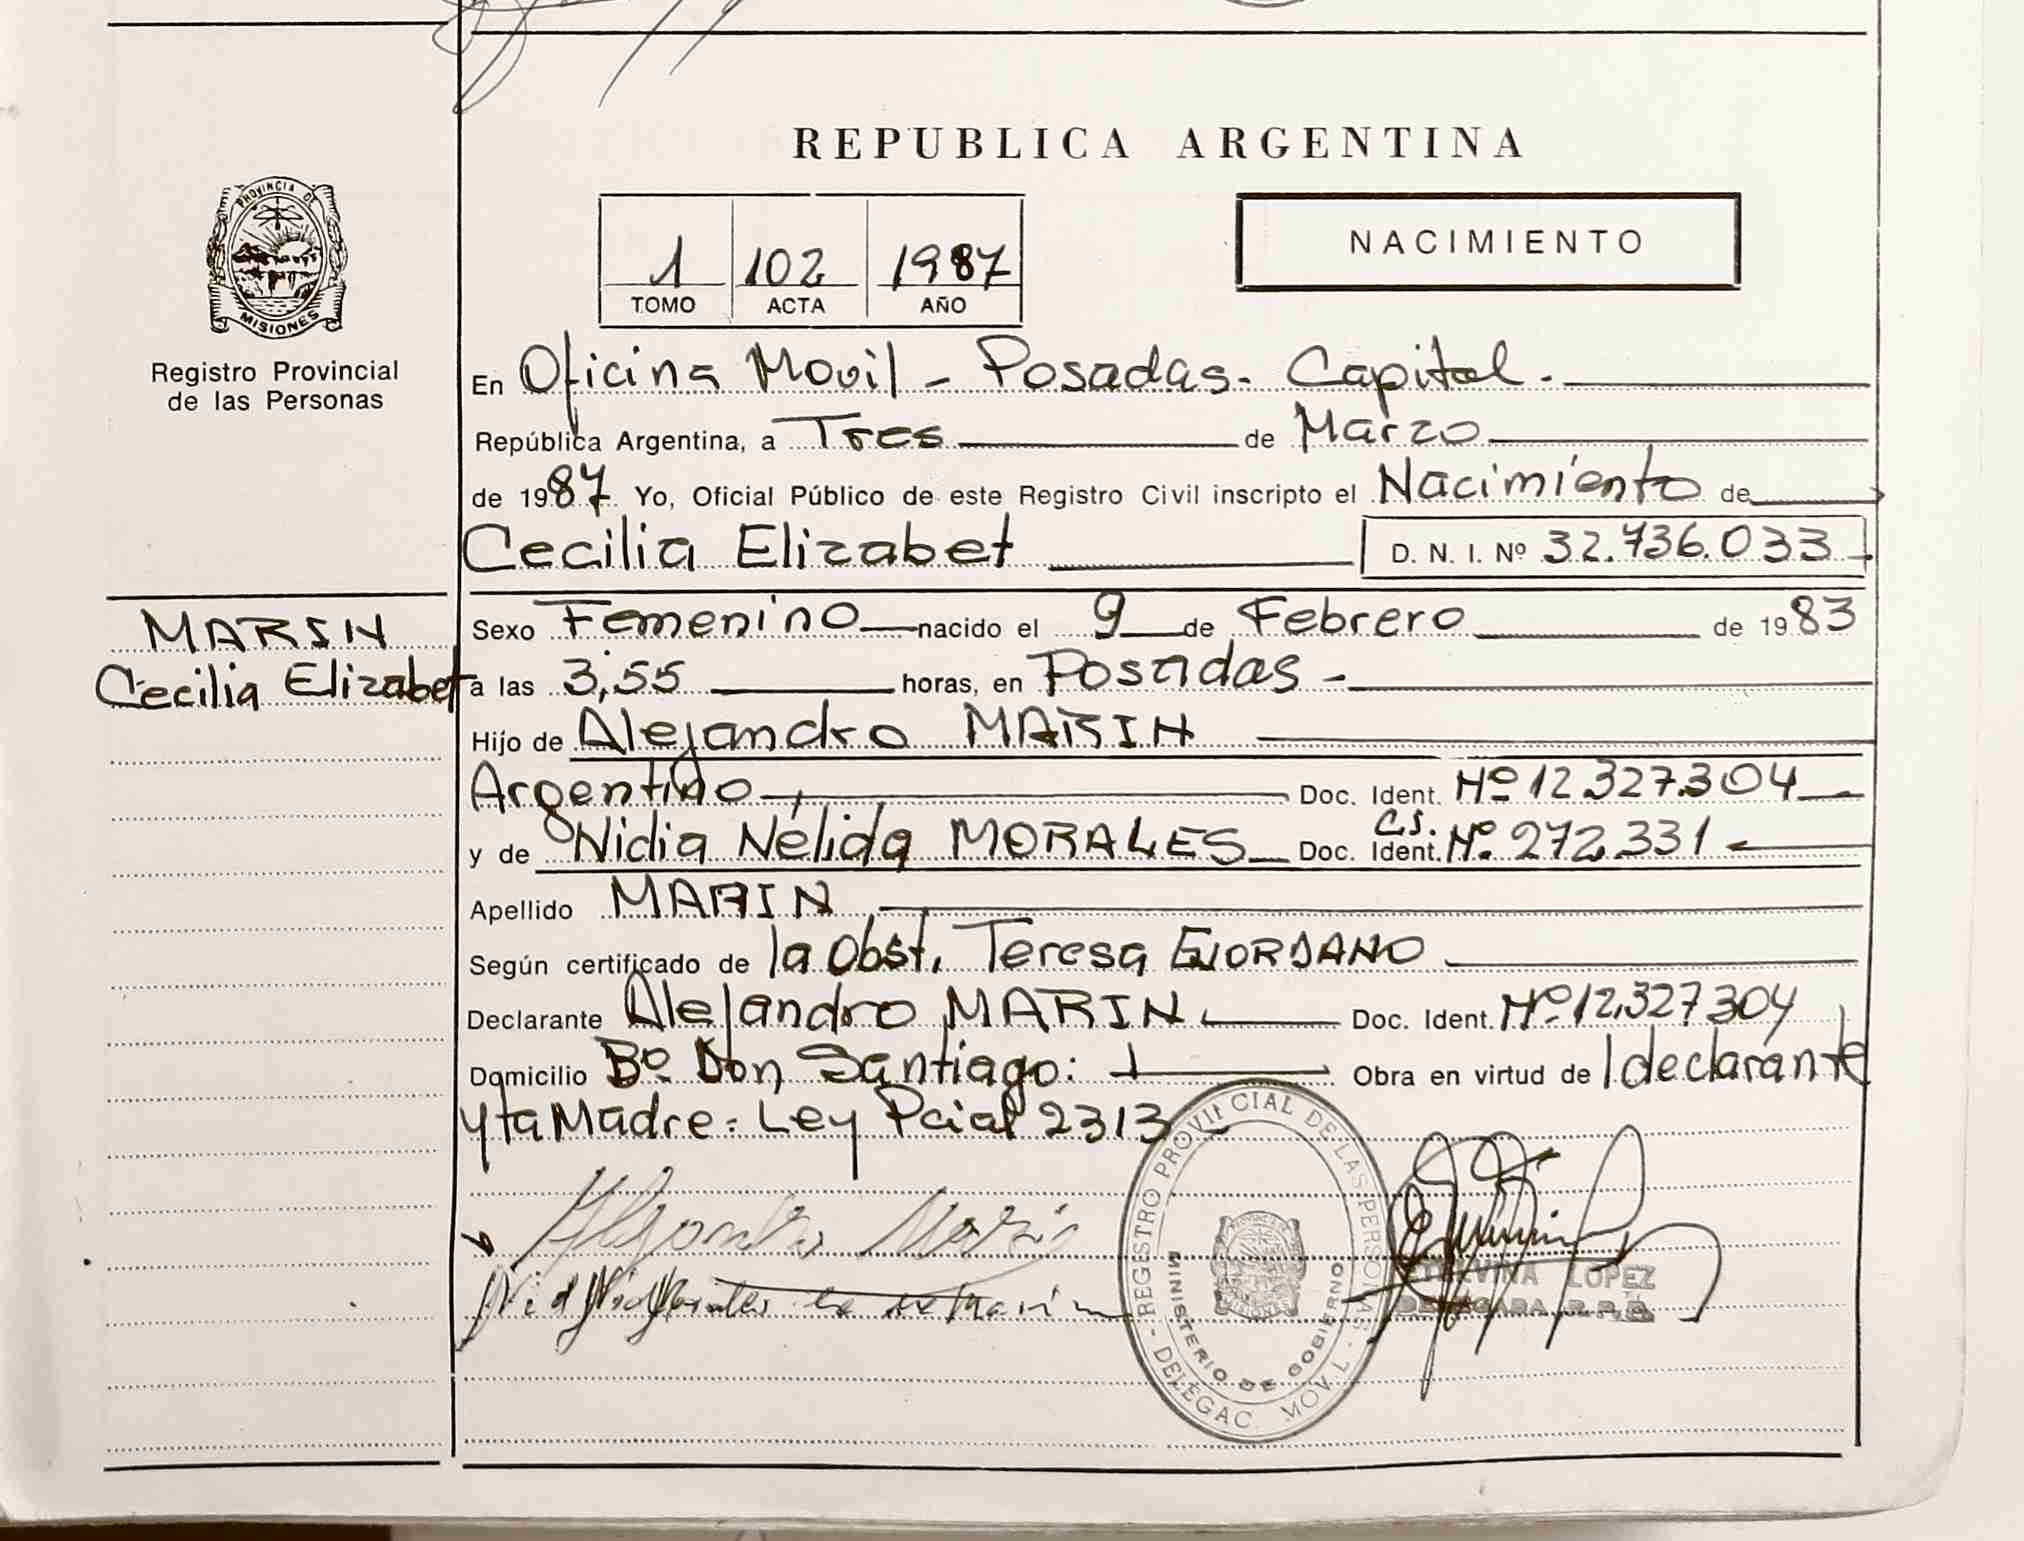 REPUBLICA ARGENTINA
PROVINCIA DE MISIONES
Registro Provincial
de las Personas
1 102 1987
TOMO ACTA AÑO
NACIMIENTO
En Oficina Movil - Posadas - Capital.
República Argentina, a Tres de Marzo
de 1987 Yo, Oficial Público de este Registro Civil inscripto el Nacimiento de
Cecilia Elizabet D. N. I. Nº 32.736.033
MARIN
Cecilia Elizabet
Sexo Femenino nacido el 9 de Febrero de 1983
a las 3,55 horas, en Posadas -
Hijo de Alejandro MARIN
Argentino Doc. Ident. Nº 12.327.304
y de Nidia Nélida MORALES Doc. Ident. C.I. Nº 272.331
Apellido MARIN
Según certificado de la Obst. Teresa GIORDANO
Declarante Alejandro MARIN Doc. Ident. Nº 12.327304
Domicilio Bº Don Santiago: Obra en virtud de l declarante
y la Madre: Ley Pcial 2313
REGISTRO PROVINCIAL DE LAS PERSONAS - DELEGAC. MOVIL -
MINISTERIO DE GOBIERNO
ETELVINA LOPEZ
DELEGADA R.P.P.